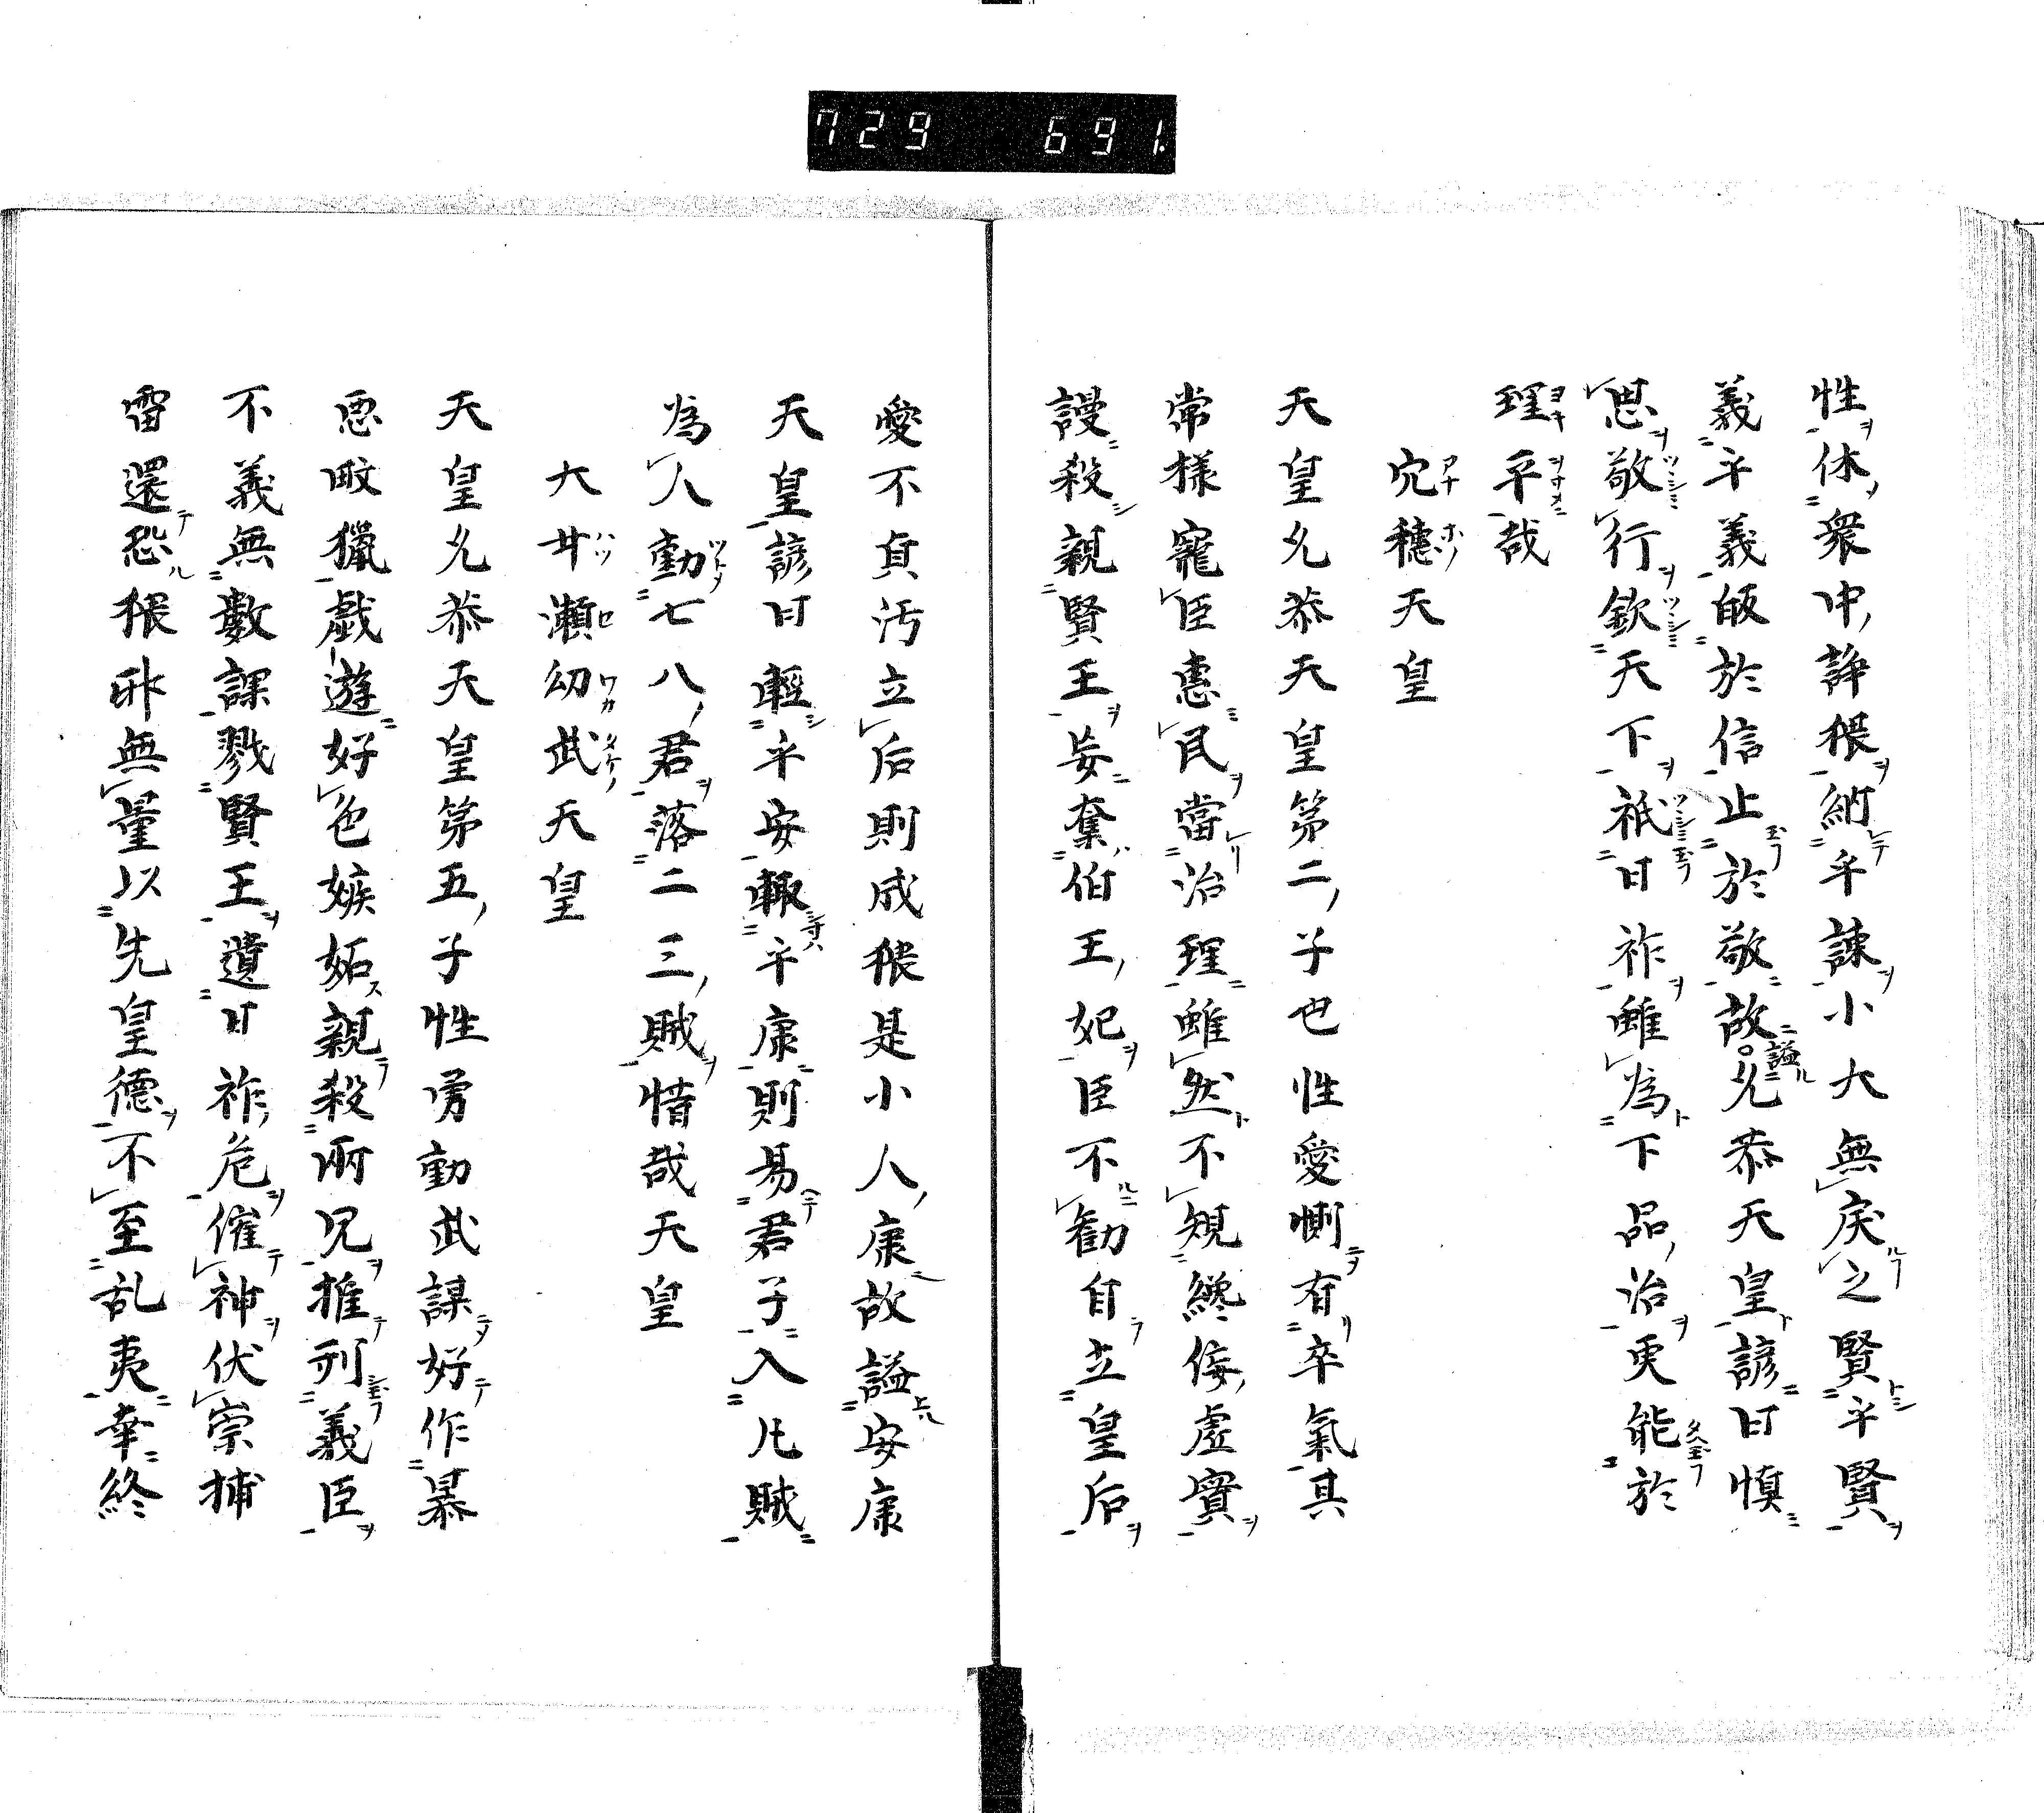 729 691.
性休衆中諍猥納乎諫小大無戾之賢乎賢
義乎義皈於信止於敬故謚允恭天皇諺曰慎
思敬行欽天下祗日祚雖為下品治更能於
理平哉
穴穗天皇
天皇允恭天皇第二子也性愛惻有卒氣其
常様寵臣恵民當治理雖然不規纔侫虚實
謾殺親賢王妄奪伯王妃臣不勸自立皇后
愛不貞汚立后則成猥是小人康故謚安康
天皇諺曰輕乎安輙乎康則易君子入凡賊
為人動七八君落二三賊惜哉天皇
大廿瀬幼武天皇
天皇允恭天皇第五子性勇動武謀好作暴
悪畋獵戯遊好色嫉妬親殺兩兄推刑義臣
不義無數謀戮賢王遺日祚危催神伏崇捕
雷還恐猥邪無量以先皇德不至乱夷幸終